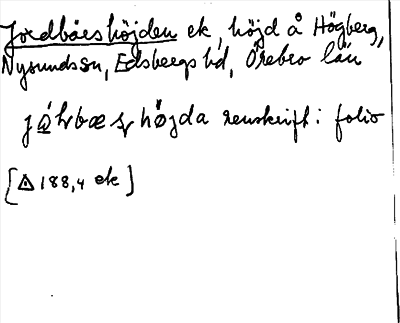 Jordbärshöjden ek, höjd å Högberg,
Nysunds sn, Edsbergs hd, Örebro län
höjda renskrift i folio
[△ 188,4 ek]